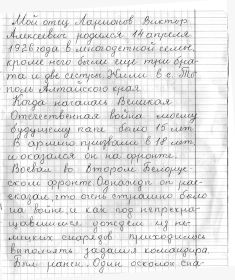 Мой отец Ларионов Виктор
Алексеевич родился 14 апреля
1926 года в многодетной семье,
кроме него были еще три бра-
та и две сестры. Жили в с. То-
поли Алтайского края.
Когда началась Великая
Отечественная война моему
будущему папе было 15 лет.
В армию призвали в 18 лет
и оказался он на фронте.
Воевал во Втором Белорус-
ском фронте. Однажды он рас-
сказал, что очень страшно было
на войне и как под непрекра-
щавшимся дождем из не-
мецких снарядов приходилось
выполнять задания командира.
Был ранен. Один осколок сна-